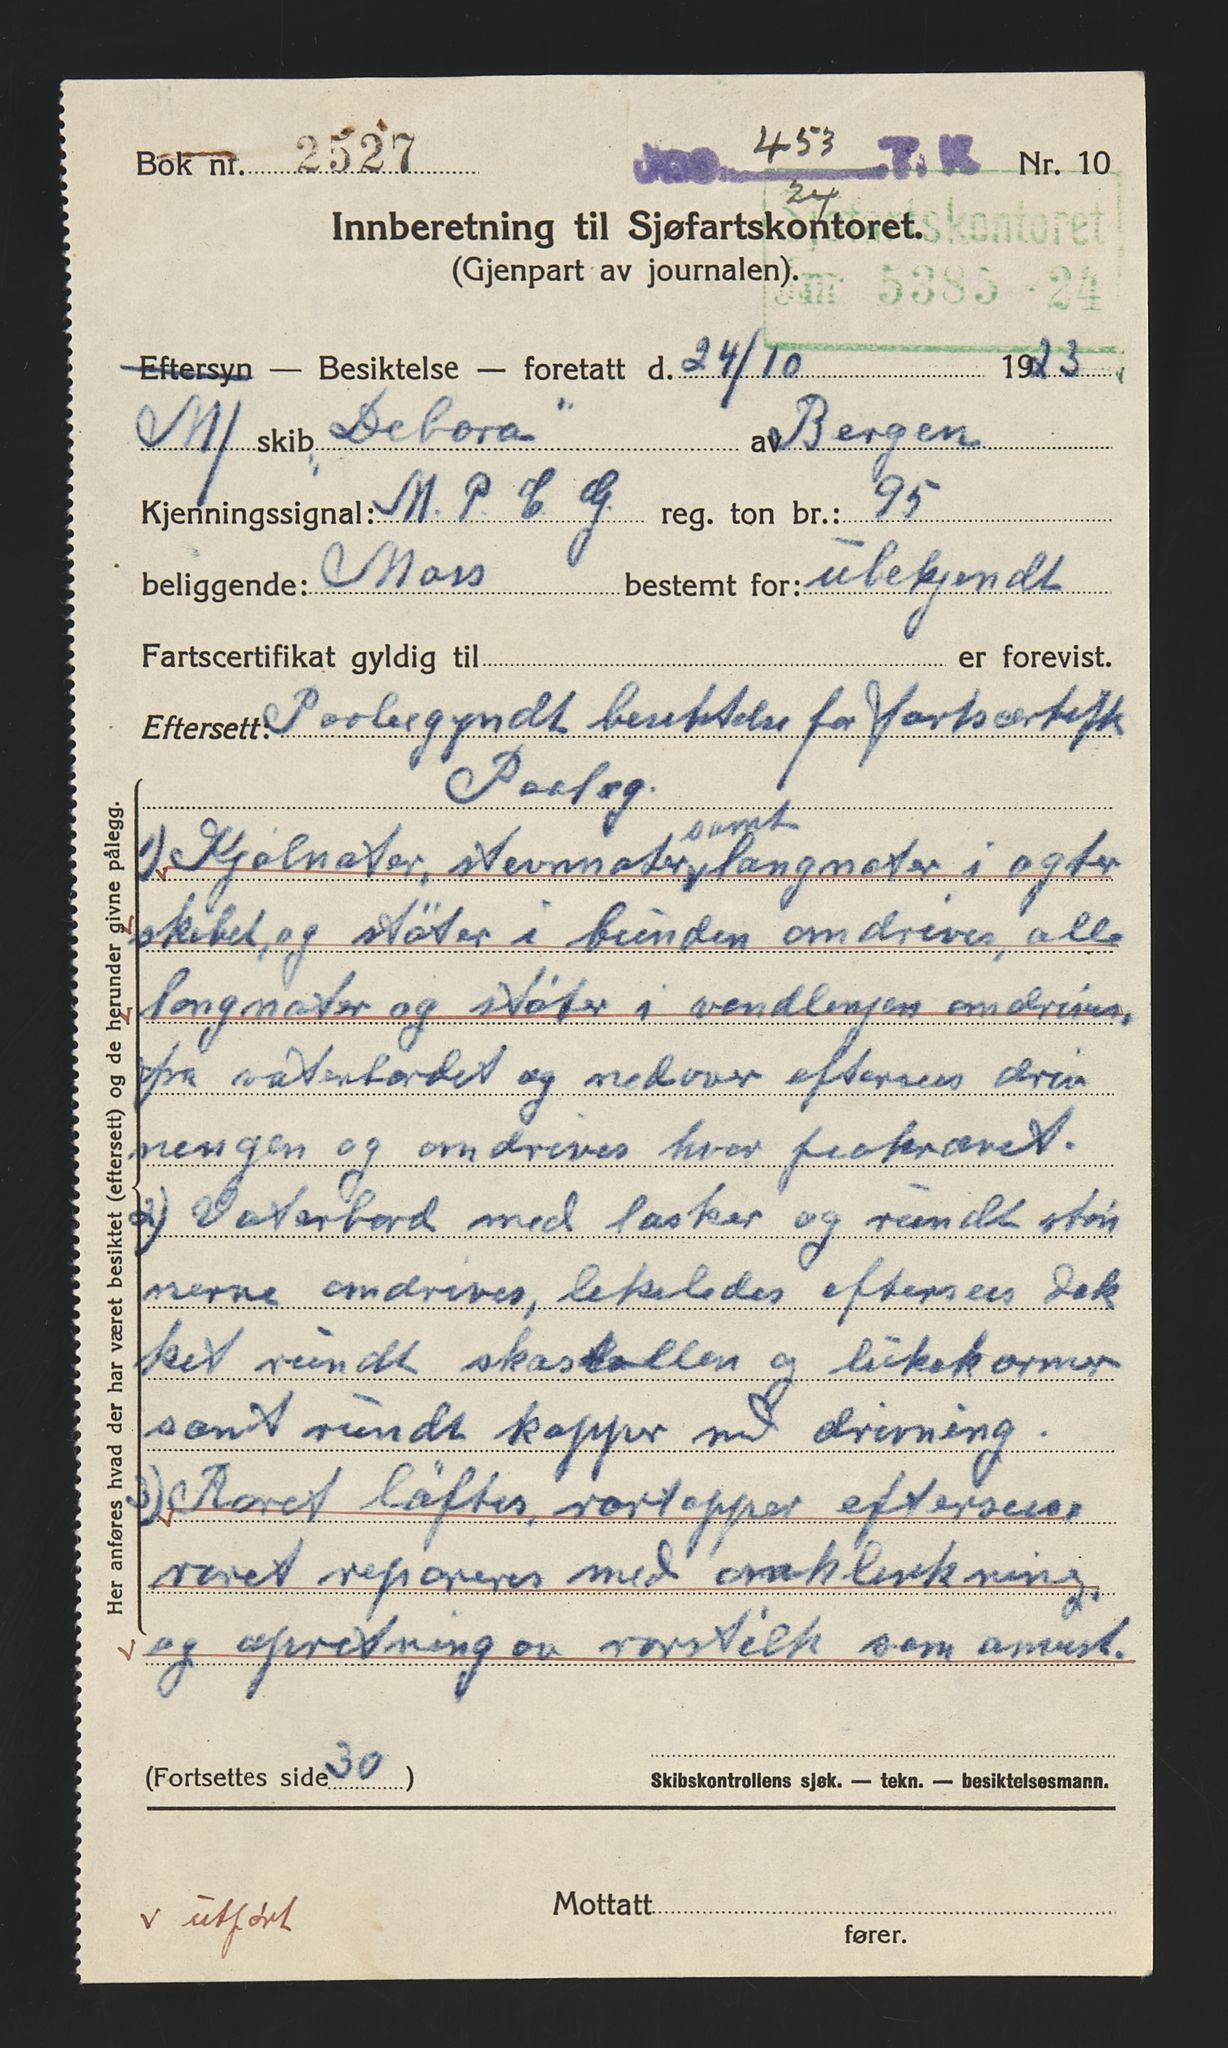 Bok nr. 2527
Jno. 453 T. K Nr. 10
24
Innberetning til Sjøfartskontoret.
Sjøfartskontoret
(Gjenpart av journalen).
Jnr 5385 - 24
Eftersyn — Besiktelse — foretatt d. 24/10 1923
M/ skib „Debora" av Bergen
Kjenningssignal: M. P. C. G. reg. ton br.: 95
beliggende: Moss bestemt for: ubekjendt
Fartscertifikat gyldig til er forevist.
Eftersett: Paabegyndt besiktelse for fartscertifik
Paalæg.
samt
1) Kjølnater, stevnnater, langnater i agter
skibet, og støter i bunden omdrives, alle
langnater og støter i vendlengen omdrives.
fra vaterbordet og nedover eftersees driv
ningen og omdrives hvor paakrævet.
2) Vaterbord med lasker og rundt støt
nerne omdrives, likeledes eftersees dek
ket rundt skastellen og lukekarmer
samt rundt kapper med drivning.
3) Roret løftes, rortapper eftersees,
roret repareres med omklinkning,
og opretning av rorstilk som anvist.
Her anføres hvad der har været besiktet (eftersett) og de herunder givne pålegg.
(Fortsettes side 30 )
Skibskontrollens sjøk. — tekn. — besiktelsesmann.
Mottatt
v utført
fører.